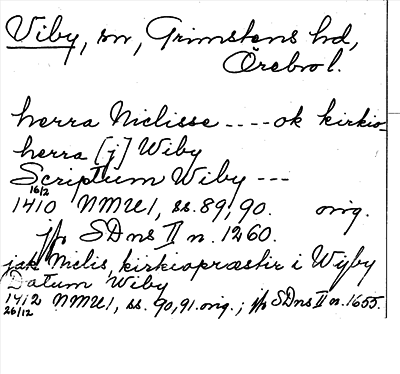 Viby, sn, Grimstens hd,
Örebro l.
herra Niclisse ---- ok kirkio-
herra [j] Wiby
Scriptum Wiby ---
16/2
1410 NMU1, ss. 89, 90. orig.
jfr SDns II n. 1260.
jak Niclis, kirkiopræstir i Wyby
Datum Wiby
1412 NMU1, ss. 90, 91. orig.; jfr SDns II n. 1655.
26/12